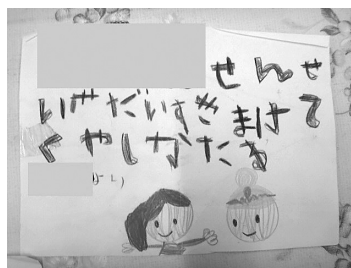 せんせ
いがだいすきまけて
くやしがた